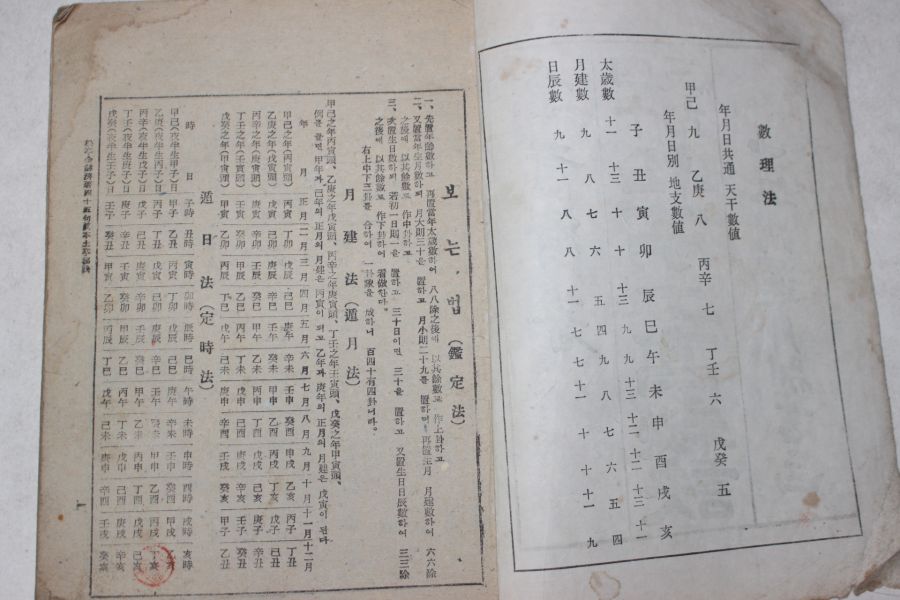 數理法
年月日共通 天干數値
甲己 九 乙庚 八 丙辛 七 丁壬 六 戊癸 五
年月日別 地支數値
子 丑 寅 卯 辰 巳 午 未 申 酉 戌 亥
太歲數 十一 十三 十 十 十三 九 九 十三 十二 十二 十三 十一
月建數 九 八 七 六 五 四 九 八 七 六 五 四
日辰數 九 十一 八 八 十一 七 七 十一 十 十 十一 九
보는、법(鑑定法)
一、先置年齡數하고 再置當年太歲數하여 八八除之後에 以其餘數로 作上卦하고
二、又置當年生月數하되 月大則三十을 置하고 月小則二十九를 置하며 再置生月 月建數하여 六六除之後에 以其餘數로 作中卦하고
三、次置生日數하되 若初一日則一을 置하고 三十日이면 三十을 置하고 又置生日日辰數하여 三三除之後에 以其餘數로 作下卦하여 看做한다。
右上中下三卦를 合하여 一卦象을 成하니 百四十有四卦니라。
月建法(遁月法)
甲己之年丙寅頭、乙庚之年戊寅頭、丙辛之年庚寅頭、丁壬之年壬寅頭、戊癸之年甲寅頭、
例를 들면 甲年과 己年의 正月의 月建은 丙寅이 되고 乙年과 庚年의 正月의 月建은 戊寅이 된다
年 月 正月 二月 三月 四月 五月 六月 七月 八月 九月 十月 十一月 十二月
甲己之年(丙寅頭) 丙寅 丁卯 戊辰 己巳 庚午 辛未 壬申 癸酉 甲戌 乙亥 丙子 丁丑
乙庚之年(戊寅頭) 戊寅 己卯 庚辰 辛巳 壬午 癸未 甲申 乙酉 丙戌 丁亥 戊子 己丑
丙辛之年(庚寅頭) 庚寅 辛卯 壬辰 癸巳 甲午 乙未 丙申 丁酉 戊戌 己亥 庚子 辛丑
丁壬之年(壬寅頭) 壬寅 癸卯 甲辰 乙巳 丙午 丁未 戊申 己酉 庚戌 辛亥 壬子 癸丑
戊癸之年(甲寅頭) 甲寅 乙卯 丙辰 丁巳 戊午 己未 庚申 辛酉 壬戌 癸亥 甲子 乙丑
遁日法(定時法)
時 日 子時 丑時 寅時 卯時 辰時 巳時 午時 未時 申時 酉時 戌時 亥時
甲己(夜半生甲子)日 甲子 乙丑 丙寅 丁卯 戊辰 己巳 庚午 辛未 壬申 癸酉 甲戌 乙亥
乙庚(夜半生丙子)日 丙子 丁丑 戊寅 己卯 庚辰 辛巳 壬午 癸未 甲申 乙酉 丙戌 丁亥
丙辛(夜半生戊子)日 戊子 己丑 庚寅 辛卯 壬辰 癸巳 甲午 乙未 丙申 丁酉 戊戌 己亥
丁壬(夜半生庚子)日 庚子 辛丑 壬寅 癸卯 甲辰 乙巳 丙午 丁未 戊申 己酉 庚戌 辛亥
戊癸(夜半生壬子)日 壬子 癸丑 甲寅 乙卯 丙辰 丁巳 戊午 己未 庚申 辛酉 壬戌 癸亥
一